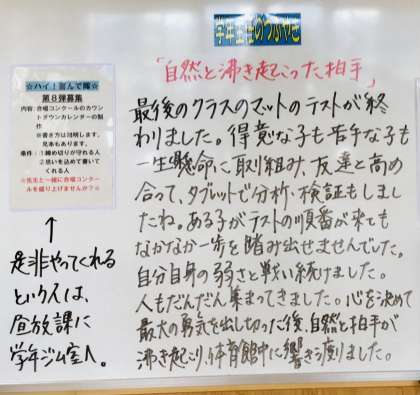 学年主任のつぶやき
「自然と沸き起こった拍手」
最後のクラスのマットのテストが終
わりました。得意な子も苦手な子も
一生懸命に取り組み、友達と高め
合って、タブレットで分析・検証もしまし
たね。ある子がテストの順番が来ても
なかなか一歩を踏み出せませんでした。
自分自身の弱さと戦い続けました。
人もだんだん集まってきました。心を決めて
最大の勇気を出し切った後、自然と拍手が
沸き起こり、体育館中に響き渡りました。
☆ハイ!喜んで隊☆
第8弾募集
内容:合唱コンクールのカウン
トダウンカレンダーの製
作
※書き方は説明します。
見本もあります。
条件:①締め切りが守れる人
②思いを込めて書いて
くれる人
☆先生と一緒に合唱コンクー
ルを盛り上げませんか?☆
↑
是非やってくれる
という人は、
昼放課に
学年ジム室へ。